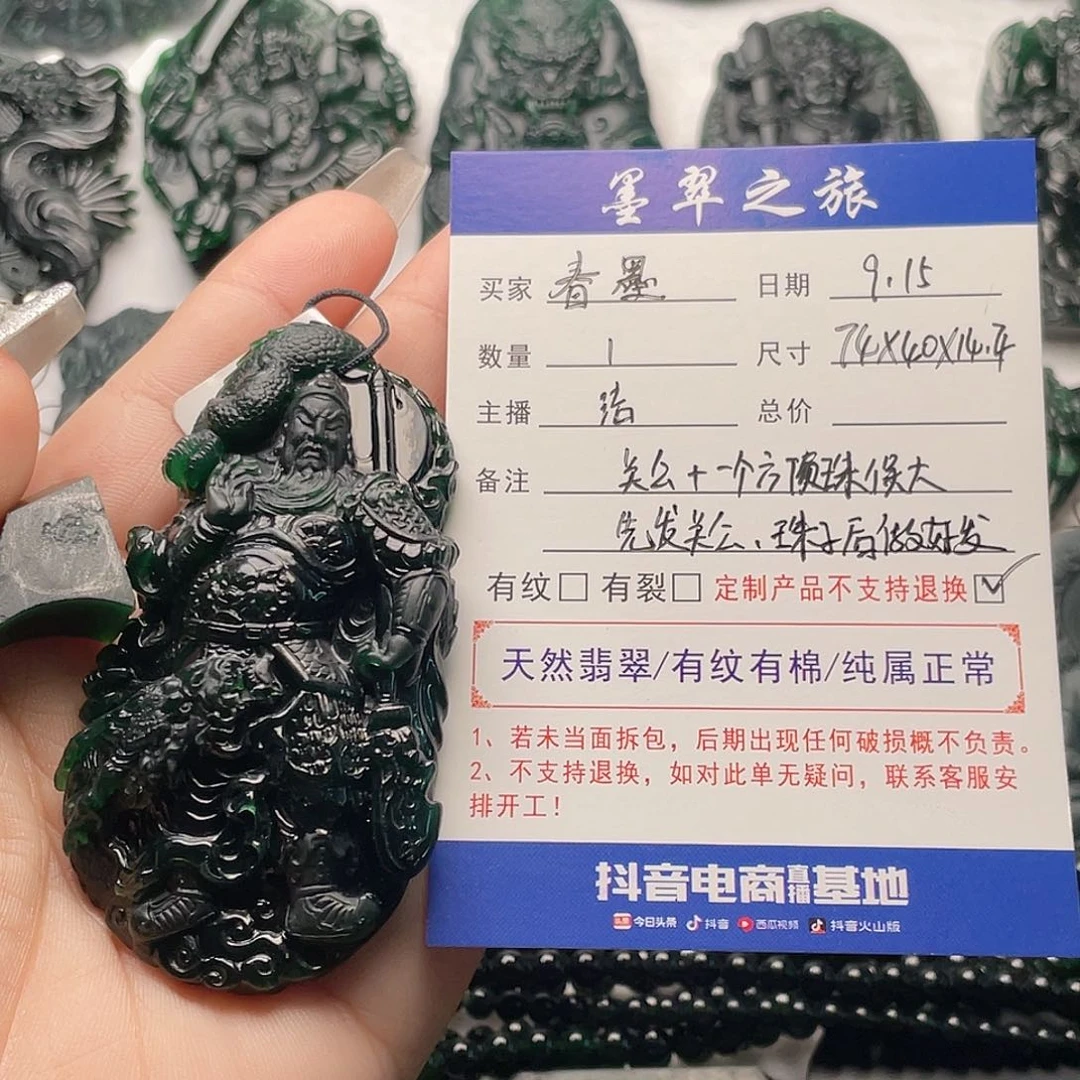 墨翠之旅
买家 春墨 日期 9.15
数量 1 尺寸 74X40X14.4
主播 浩 总价
备注 关公+一个方顶珠保大
先发关公、珠子后做好发
有纹 有裂 定制产品不支持退换
天然翡翠/有纹有棉/纯属正常
1、若未当面拆包，后期出现任何破损概不负责。
2、不支持退换，如对此单无疑问，联系客服安
排开工！
抖音电商直播基地
今日头条 抖音 西瓜视频 抖音火山版